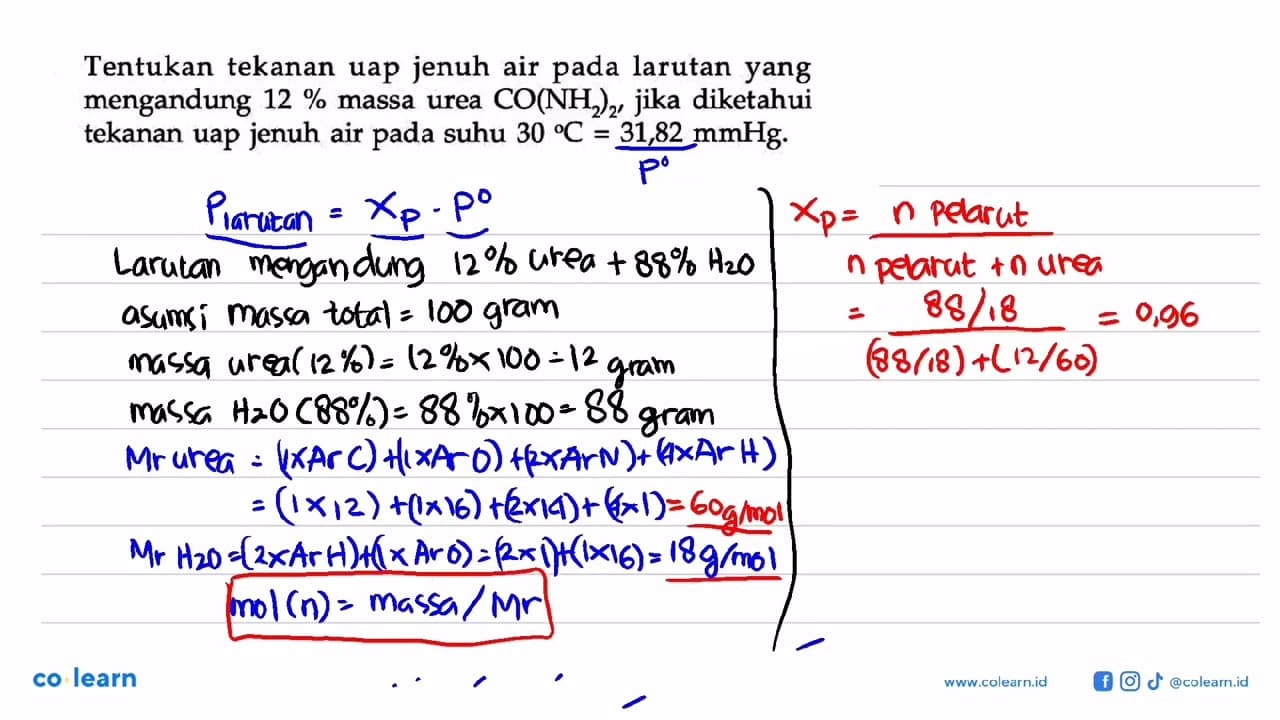 Tentukan tekanan uap jenuh air pada larutan yang
mengandung 12 % massa urea CO(NH₂)₂, jika diketahui
tekanan uap jenuh air pada suhu 30 °C = 31,82 mmHg.
P°
Plarutan = Xp . P°
Larutan mengandung 12% urea + 88% H2O
asumsi massa total = 100 gram
massa urea (12%) = 12% x 100 = 12 gram
massa H2O (88%) = 88% x 100 = 88 gram
Mr urea = (1xAr C) + (1xAr O) + (2xAr N) + (4xAr H)
= (1x12) + (1x16) + (2x14) + (4x1) = 60g/mol
Mr H2O = (2xAr H) + (1xAr O) = (2x1) + (1x16) = 18g/mol
mol (n) = massa / Mr
Xp = n pelarut
n pelarut + n urea
= 88/18 = 0,96
(88/18) + (12/60)
co learn
www.colearn.id
@colearn.id